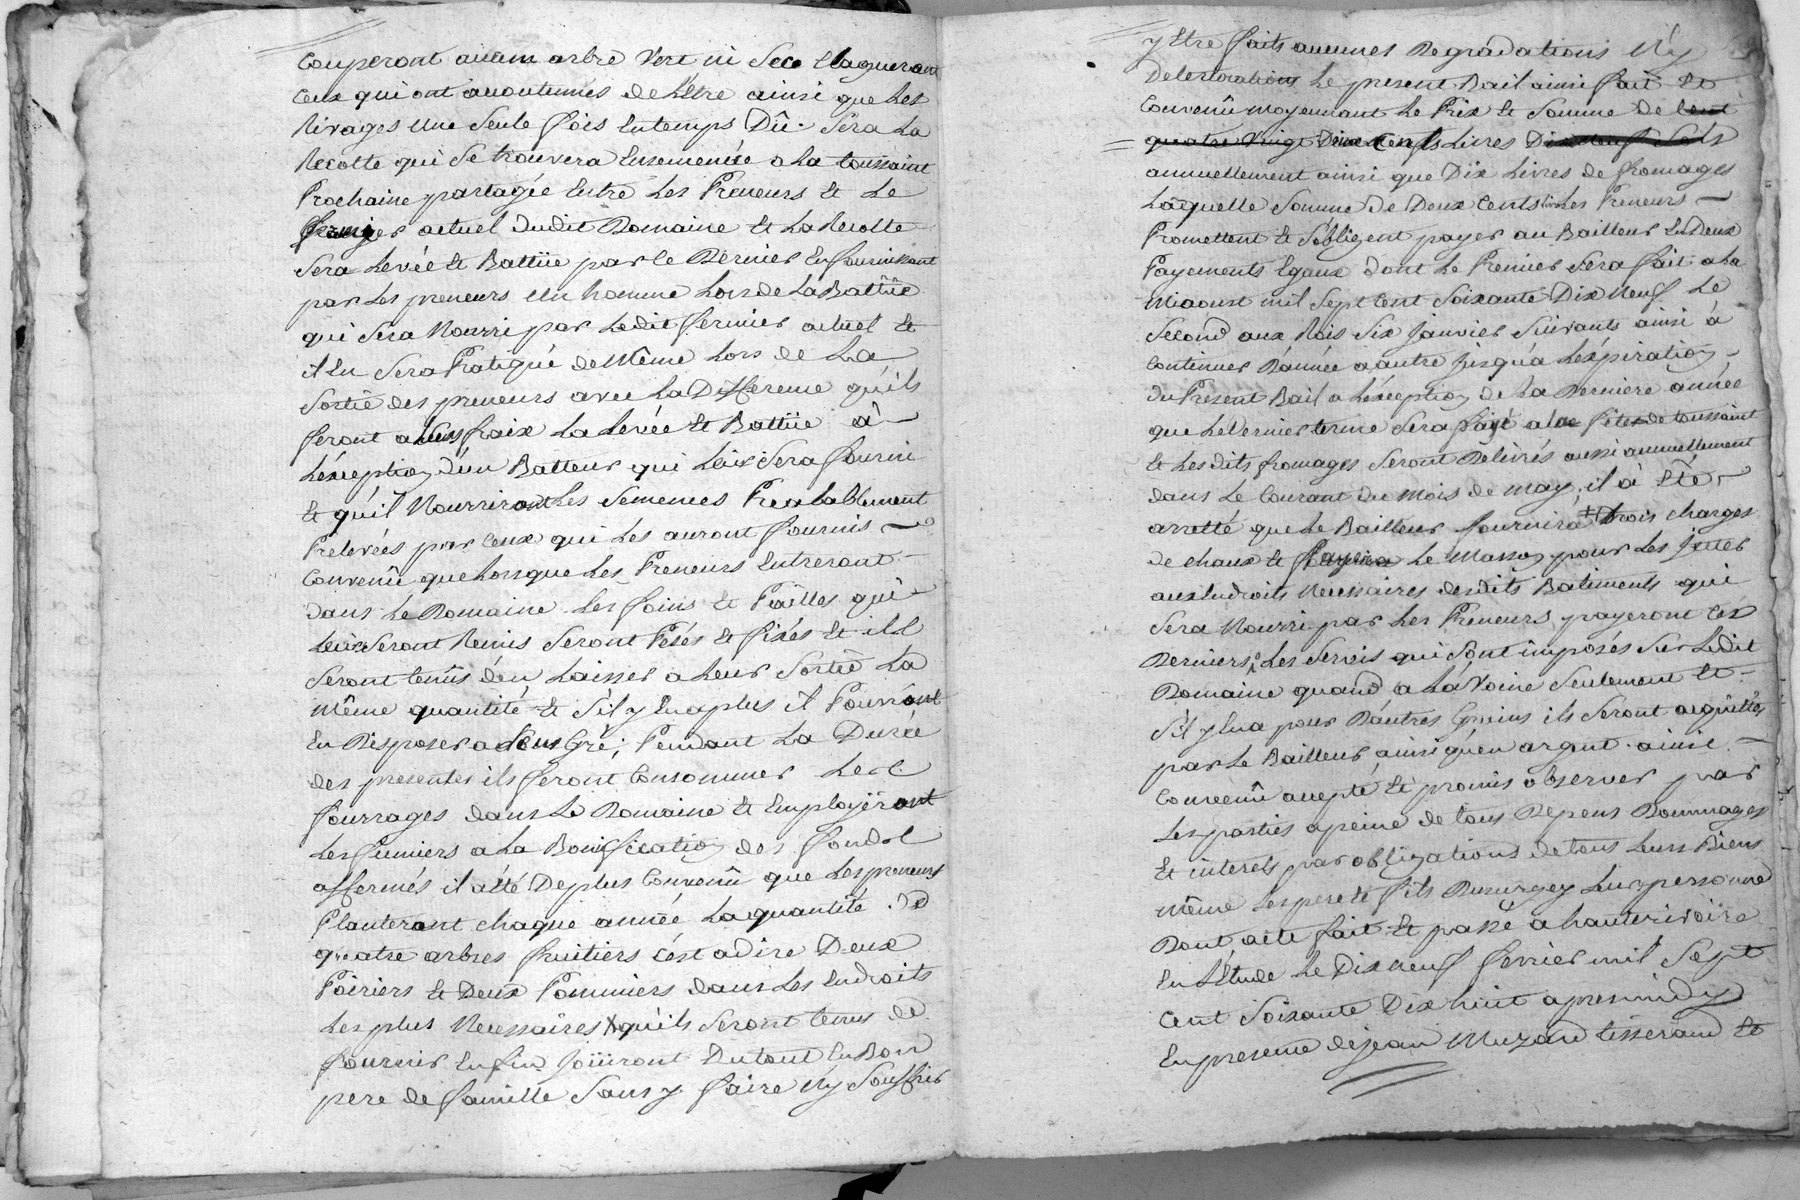 Couperont aucun arbre Vert ni Sec Elagueront
Ceux qui ont accoutumés de L'être ainsi que Les
Rivages une Seule fois En temps Dû. Sera La
Recolte qui Se trouvera Ensemencée a La toussaint
Prochaine partagée Entre Les Preneurs Et Le
fermier actuel dudit Domaine Et La Recolte
Sera Levée Et Battüe par ce Dernier En fournissant
par Les preneurs un homme Lors de La Battüe
qui Sera Nourri par Ledit fermier actuel Et
il En Sera Pratiqué de Même Lors de La
Sortie des preneurs avec La Difference qu'ils
feront a Leurs fraix La Levée Et Battüe à
L'exception d'un Batteur qui Leur Sera fourni
Et qu'il Nourriront Les Semences Prealablement
Prelevées par Ceux qui Les auront fournis
Convenû que Lorsque Les Preneurs Entreront
dans Le Domaine Les foins Et Pailles qui
Leur Seront Remis Seront Pesés Et fixés Et ils
Seront tenûs d'en Laisser a Leur Sortie La
Même quantité Et S'il y En a plus il Pourront
En Disposer a Leur Gré; Pendant La Durée
des presentes ils feront Consommer Les
fourrages dans Le Domaine Et Employeront
Les fumiers a La Bonification des fonds
affermés il a été De plus Convenû que Les preneurs
Planteront chaque année La quantité de
quatre arbres fruitiers c'est a dire Deux
Poiriers Et Deux Pommiers dans Les Endroits
Les plus Necessaires qu'ils Seront tenus de
fournir Enfin Joüiront Du tout En Bon
pere de famille Sans y faire N'y Souffrir
y Etre faits aucunes Degradations N'y
Deteriorations Le present Bail ainsi fait Et
Convenû moyennant Le Prix Et Somme De Cent
quatre Vingt Deux Cents Livres Dix neuf Sols
annuellement ainsi que Dix Livres de fromages
Laquelle Somme De Deux Cents Livres Les Preneurs
Promettent Et S'obligent payer au Bailleur En Deux
Payements Egaux dont Le Premier Sera fait a La
Miaoust mil Sept Cent Soixante Dix Neuf Le
Second aux Rois Six Janvier Suivants ainsi à
Continuer D'année a autre Jusqu'a L'expiration
Du Présent Bail a L'exception de La Derniere année
que Le Dernier terme Sera payé a La fête de toussaint
Et Lesdits fromages Seront Delivrés aussi annuellement
dans Le Courant Du Mois de may, il à Eté
arretté que Le Bailleur fournira trois charges
de chaux Et payera Le Masson pour Les Jetter
aux Endroits Necessaires desdits Batiments qui
Sera Nourri par Les Preneurs, payeront Ces
Derniers Les Servis qui Sont imposés Sur Ledit
Domaine quand a L'avoine Seulement Et
S'il y En a pour D'autres Grains ils Seront acquittés
par Le Bailleur, ainsi qu'en argent. ainsi
Convenû accepté Et promis observer par
Les parties a peine de tous Depens Dommages
Et interets par obligations de tous Leurs Biens
Même Les pere Et fils Leurs personnes
Dont acte fait Et passé a hauterivoire
En L'Etude Le Dix neuf fevrier mil Sept
Cent Soixante Dix huit apres midy
En presence de Jean Muzard tisserand Et